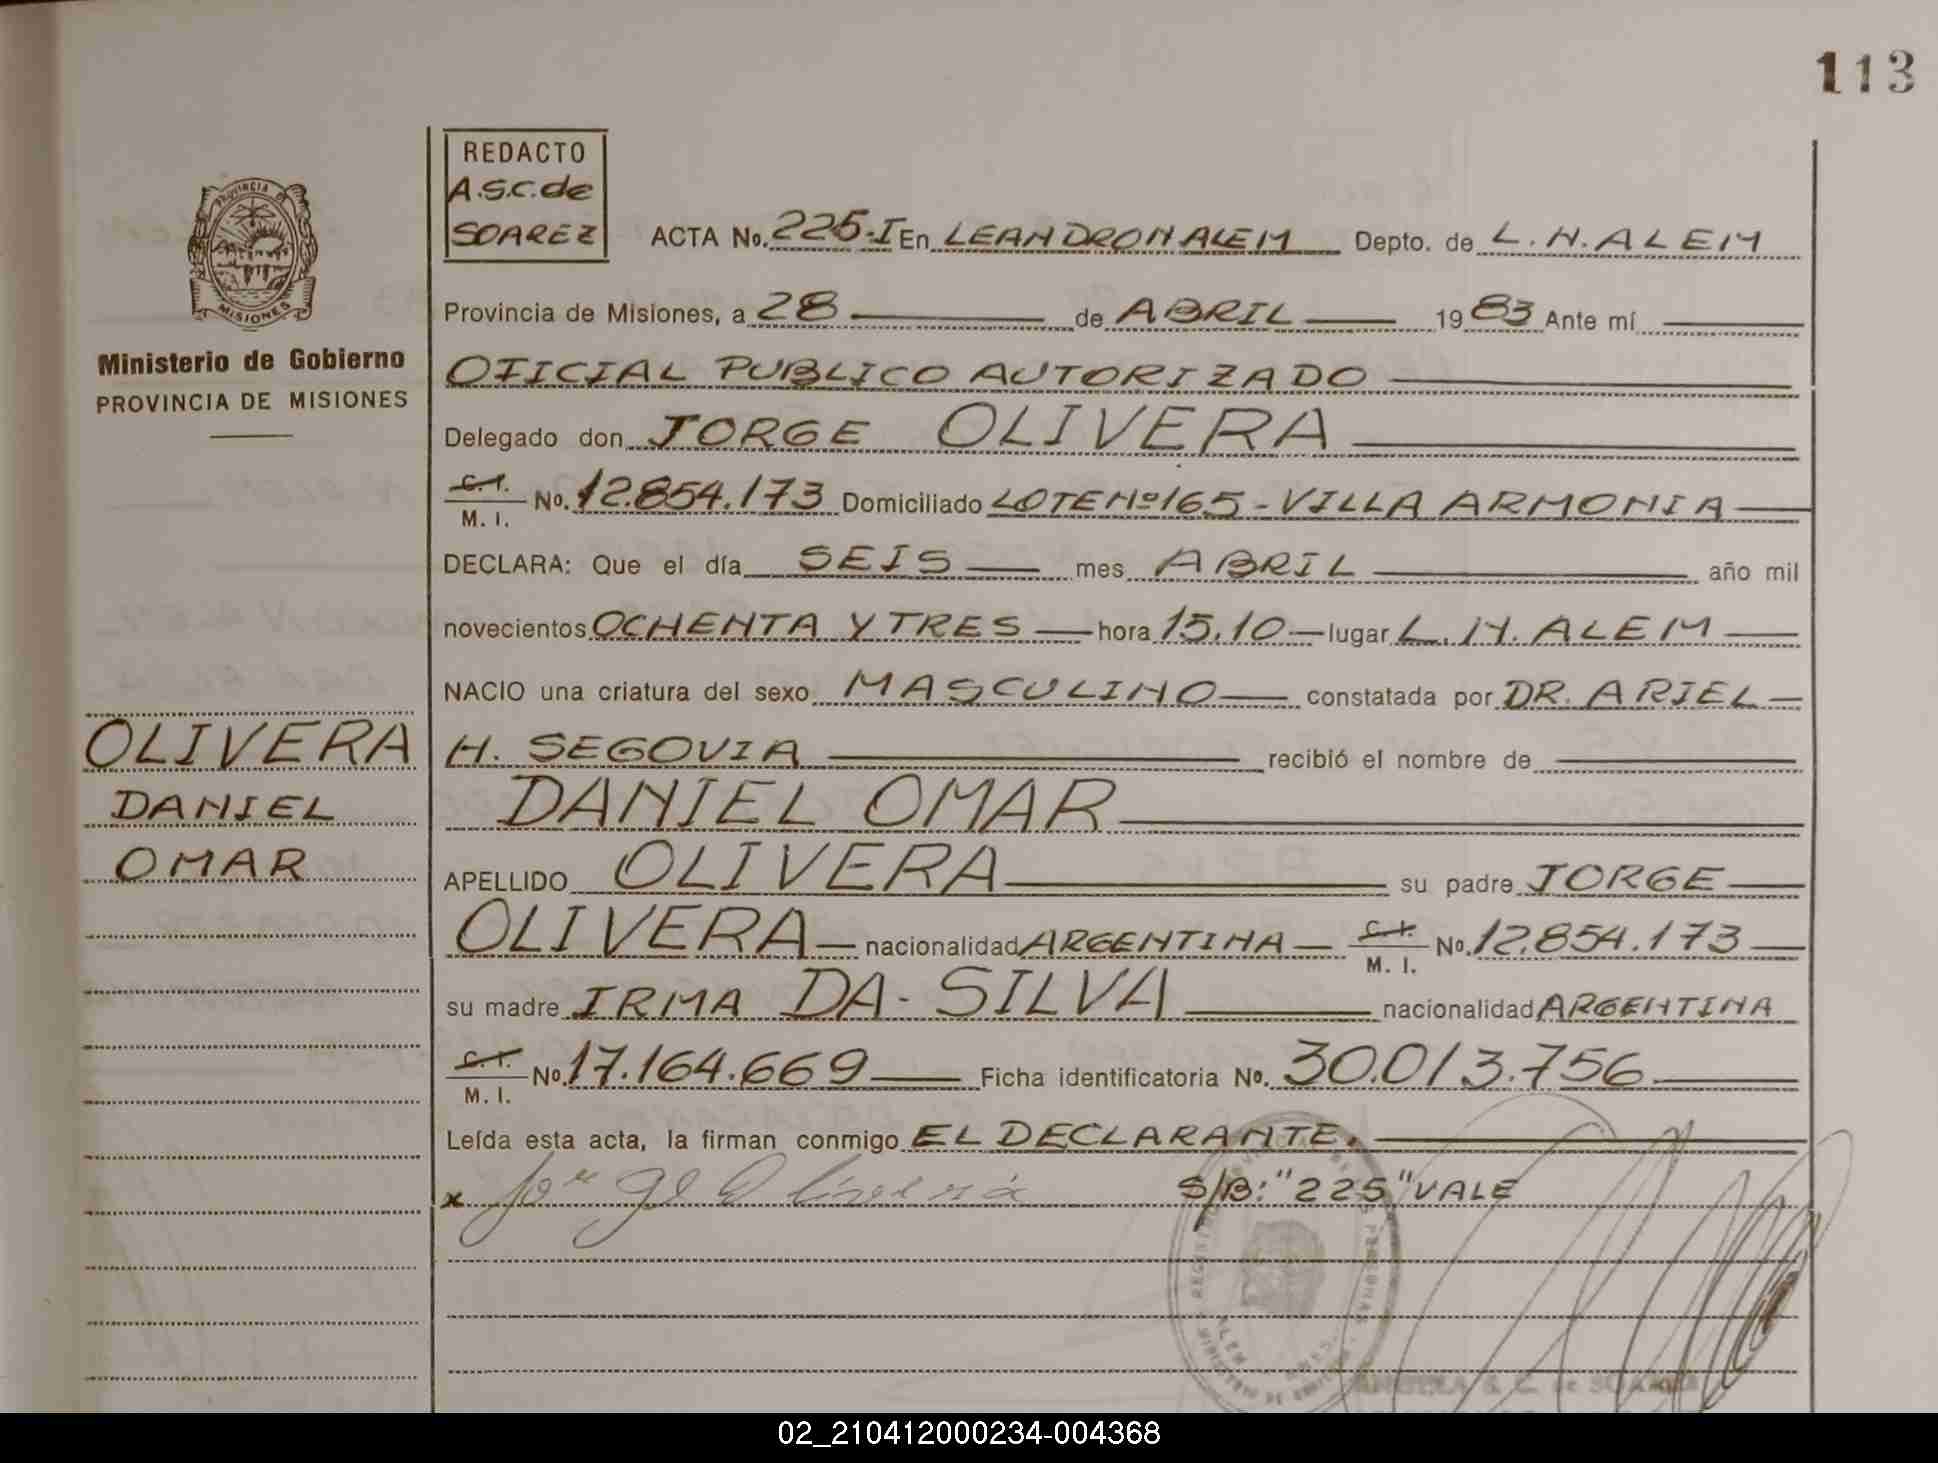 113
REDACTO
A.S.C. de
SOAREZ
ACTA No. 225-I En LEANDRO N ALEM Depto. de L. N. ALEM
PROVINCIA DE
MISIONES
Provincia de Misiones, a 28 de ABRIL 1983 Ante mí
Ministerio de Gobierno
PROVINCIA DE MISIONES
OFICIAL PUBLICO AUTORIZADO
Delegado don JORGE OLIVERA
C.I. M. I. No. 12.854.173 Domiciliado LOTE Nº 165 - VILLA ARMONIA
DECLARA: Que el día SEIS mes ABRIL año mil
novecientos OCHENTA Y TRES hora 15,10 lugar L. N. ALEM
NACIO una criatura del sexo MASCULINO constatada por DR. ARIEL
OLIVERA
DANIEL
OMAR
H. SEGOVIA recibió el nombre de
DANIEL OMAR
APELLIDO OLIVERA su padre JORGE
OLIVERA nacionalidad ARGENTINA C.I. M. I. No. 12.854.173
su madre IRMA DA-SILVA nacionalidad ARGENTINA
C.I. M. I. No. 17.164.669 Ficha identificatoria No. 30.013.756
Leída esta acta, la firman conmigo EL DECLARANTE.
x Jorge Olivera S/B: "225" VALE
02_210412000234-004368